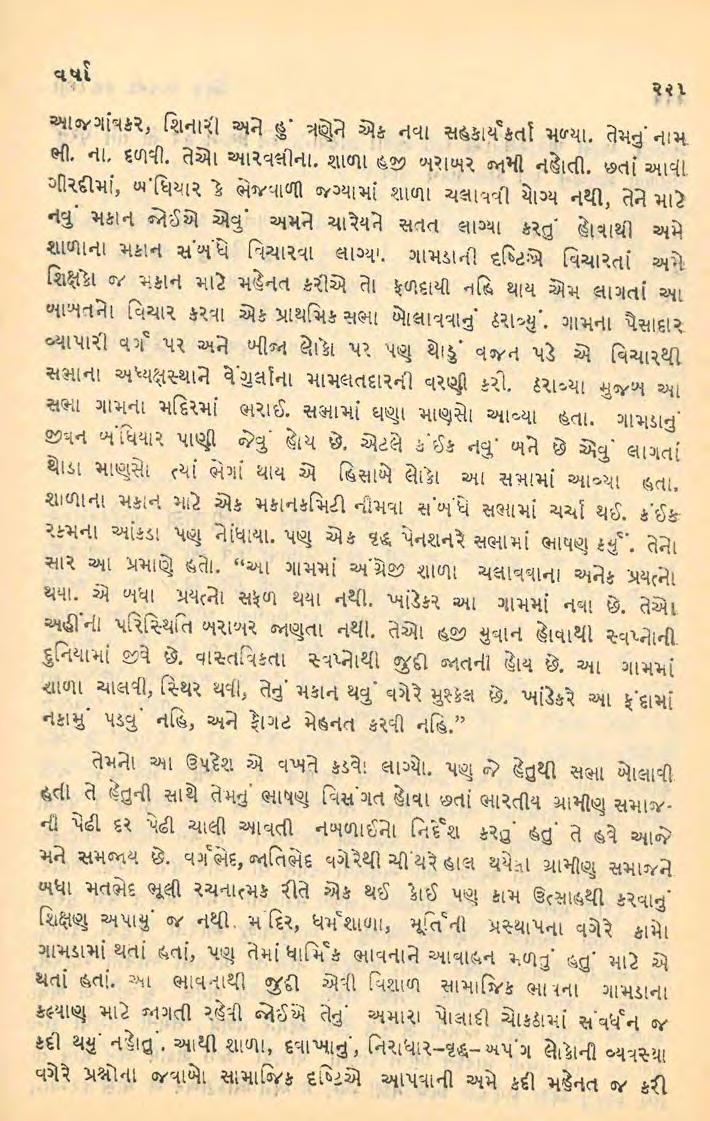 વર્ષા
૨૨૧
આજગાંવકર, શિનારી અને હું ત્રણેને એક નવા સહકાર્યકર્તા મળ્યા. તેમનું નામ
ભી. ના. દળવી. તેઓ આરવલીના. શાળા હજી બરાબર જામી નહોતી. છતાં આવી
ગીરદીમાં, બંધિયાર કે ભેજવાળી જગ્યામાં શાળા ચલાવવી યોગ્ય નથી, તેને માટે
નવું મકાન જોઈએ એવું અમને ચારેયને સતત લાગ્યા કરતું હોવાથી અમે
શાળાના મકાન સંબંધે વિચારવા લાગ્યા. ગામડાની દૃષ્ટિએ વિચારતાં અમે
શિક્ષકો જ મકાન માટે મહેનત કરીએ તો ફળદાયી નહિ થાય એમ લાગતાં આ
બાબતનો વિચાર કરવા એક પ્રાથમિક સભા બોલાવવાનું ઠરાવ્યું. ગામના પૈસાદાર
વ્યાપારી વર્ગ પર અને બીજા લોકો પર પણ થોડું વજન પડે એ વિચારથી
સભાના અધ્યક્ષસ્થાને વેંગુર્લાના મામલતદારની વરણી કરી. ઠરાવ્યા મુજબ આ
સભા ગામના મદિરમાં ભરાઈ. સભામાં ઘણા માણસો આવ્યા હતા. ગામડાનું
જીવન બંધિયાર પાણી જેવું હોય છે. એટલે કંઈક નવું બને છે એવું લાગતાં
થોડા માણસો ત્યાં ભેગાં થાય એ હિસાબે લોકો આ સભામાં આવ્યા હતા.
શાળાના મકાન માટે એક મકાનકમિટી નીમવા સંબંધે સભામાં ચર્ચા થઈ. કંઈક
રકમના આંકડા પણ નોંધાયા. પણ એક વૃદ્ધ પેનશનરે સભામાં ભાષણ કર્યું. તેનો
સાર આ પ્રમાણે હતો. “આ ગામમાં અંગ્રેજી શાળા ચલાવવાના અનેક પ્રયત્નો
થયા. એ બધા પ્રયત્નો સફળ થયા નથી. ખાંડેકર આ ગામમાં નવા છે. તેઓ
અહીંની પરિસ્થિતિ બરાબર જાણતા નથી. તેઓ હજી યુવાન હોવાથી સ્વપ્નોની
દુનિયામાં જીવે છે. વાસ્તવિકતા સ્વપ્નોથી જુદી જાતની હોય છે. આ ગામમાં
શાળા ચાલવી, સ્થિર થવી, તેનું મકાન થવું વગેરે મુશ્કેલ છે. ખાંડેકરે આ ફંદામાં
નકામું પડવું નહિ, અને ફોગટ મેહનત કરવી નહિ.”
તેમનો આ ઉપદેશ એ વખતે કડવો લાગ્યો. પણ જે હેતુથી સભા બોલાવી
હતી તે હેતુની સાથે તેમનું ભાષણ વિસંગત હોવા છતાં ભારતીય ગ્રામીણ સમાજ-
ની પેઢી દર પેઢી ચાલી આવતી નબળાઈનો નિર્દેશ કરતું હતું તે હવે આજે
મને સમજાય છે. વર્ગભેદ, જાતિભેદ વગેરેથી ચીંથરે હાલ થયેલા ગ્રામીણ સમાજને
બધા મતભેદ ભૂલી રચનાત્મક રીતે એક થઈ કોઈ પણ કામ ઉત્સાહથી કરવાનું
શિક્ષણ અપાયું જ નથી. મંદિર, ધર્મશાળા, મૂર્તિની પ્રસ્થાપના વગેરે કામો
ગામડામાં થતાં હતાં, પણ તેમાં ધાર્મિક ભાવનાને આવાહન મળતું હતું માટે એ
થતાં હતાં. આ ભાવનાથી જુદી એવી વિશાળ સામાજિક ભાવના ગામડાના
કલ્યાણ માટે જાગતી રહેવી જોઈએ તેનું અમારા પોલાદી ચોકઠામાં સંવર્ધન જ
કદી થયું નહોતું. આથી શાળા, દવાખાનું, નિરાધાર-વૃદ્ધ-અપંગ લોકોની વ્યવસ્થા
વગેરે પ્રશ્નોના જવાબો સામાજિક દૃષ્ટિએ આપવાની અમે કદી મહેનત જ કરી